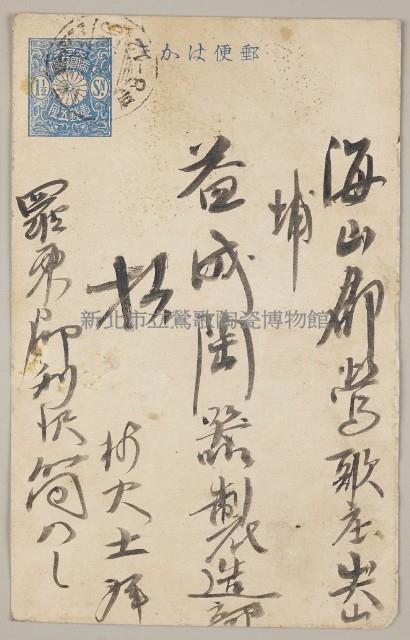 郵便はかき
1½ Sn
壹錢五厘
海山郡鶯歌庄尖山
埔
益成陶器製造部
羅東郡利澤簡
火土拜
新北市立鶯歌陶瓷博物館